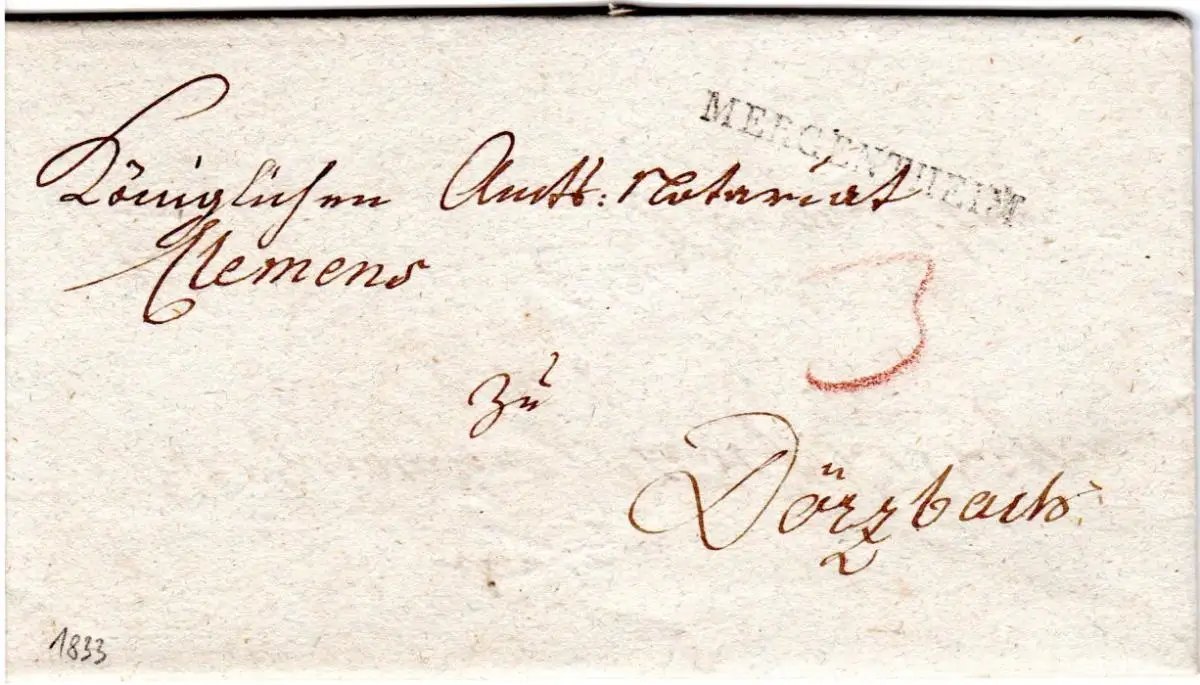 MERGENTHEIM
Königlichen Amts: Notariat
Clemens
3
zu
Dörzbach
1833